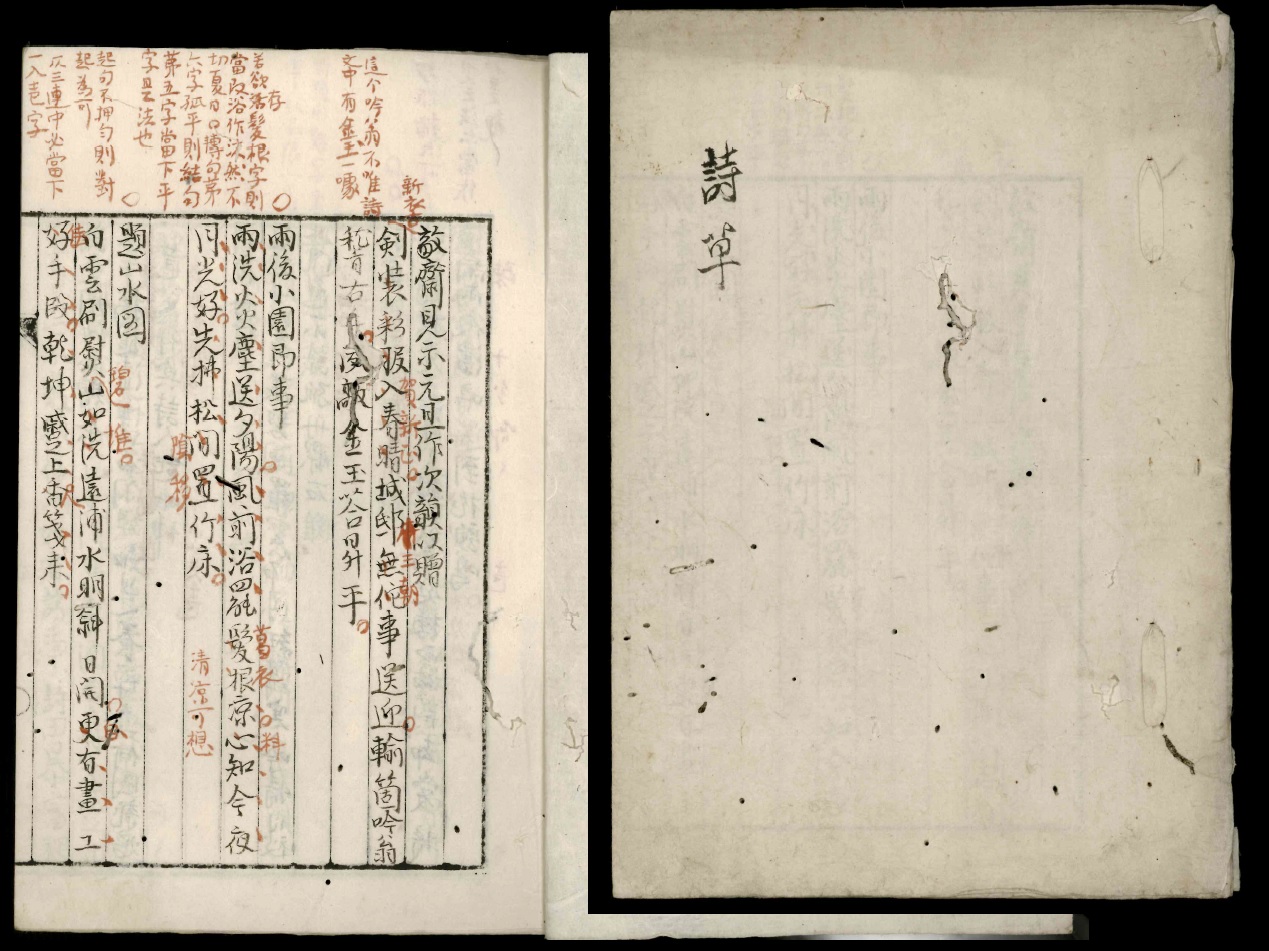 詩草
這个吟翁不唯詩
文中有金玉一喙
存
若欲活髮根字則
當改浴作決然不
切夏日口博句第
六字孤平則結句
第五字當下平
字是法也
起句不押匀則對
起為可
仄三連中必當下
一入声字
敬齋見示元旦作次韻以贈
剣装彩服入春晴城邸無佗事送迎輸箇吟翁
金玉荅昇平
新衣
賀新正
三朝
雨後小園即事
雨洗炎塵送夕陽風前浴罷髮根凉心知今夜
月光好先拂松間置竹床
葛衣
料
清凉可想
題山水図
白雲刷熨山如洗遠浦水明斜日開更有畫工
好手段乾坤蹙上香箋来
碧
堆